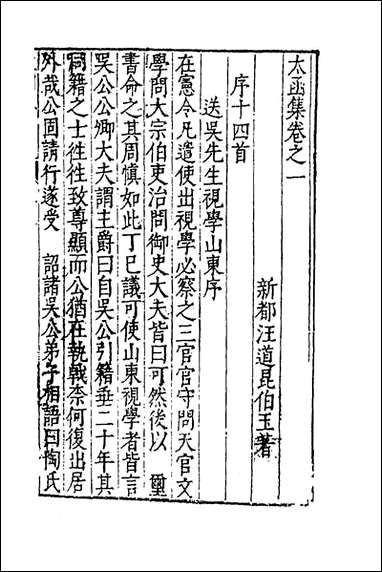 太函集卷之一
新都汪道昆伯玉著
序十四首
送吳先生視學山東序
在憲令凡遣使出視學必察之三官官守問天官文
學問大宗伯吏治問御史大夫皆曰可然後以 璽
書命之其周慎如此丁巳議可使山東視學者皆言
吳公公卿大夫謂主爵曰自吳公引籍垂二十年其
同籍之士徃徃致尊顯而公猶在執戟柰何復出居
外哉公固請行遂受 詔諸吳公弟子相語曰陶氏